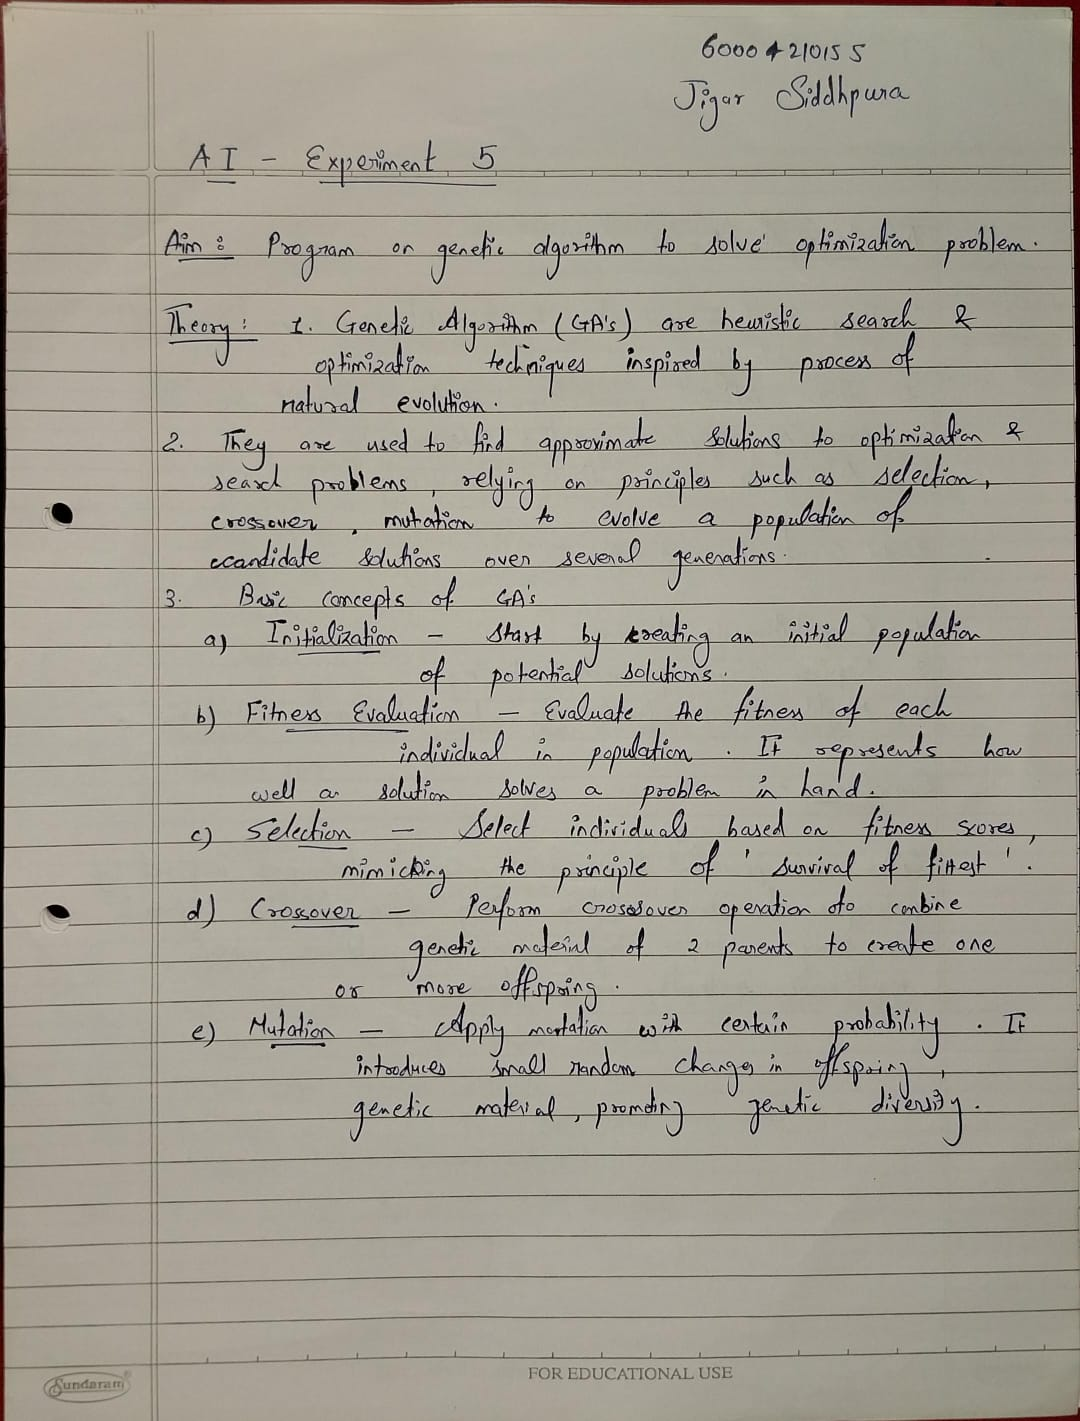 60004210155
Jigar Siddhpura
AI - Experiment 5
Aim : Program on genetic algorithm to solve optimization problem.
Theory : 1. Genetic Algorithm (GA's) are heuristic search &
optimization techniques inspired by process of
natural evolution.
2. They are used to find approximate solutions to optimization &
search problems, relying on principles such as selection,
crossover, mutation to evolve a population of
candidate solutions over several generations.
3. Basic concepts of GA's
a) Initialization - Start by creating an initial population
of potential solutions.
b) Fitness Evaluation - Evaluate the fitness of each
individual in population. It represents how
well a solution solves a problem in hand.
c) Selection - Select individuals based on fitness scores,
mimicking the principle of 'survival of fittest'.
d) Crossover - Perform crossover operation to combine
genetic material of 2 parents to create one
or more offspring.
e) Mutation - Apply mutation with certain probability. It
introduces small random changes in offspring,
genetic material, promoting genetic diversity.
Sundaram
FOR EDUCATIONAL USE